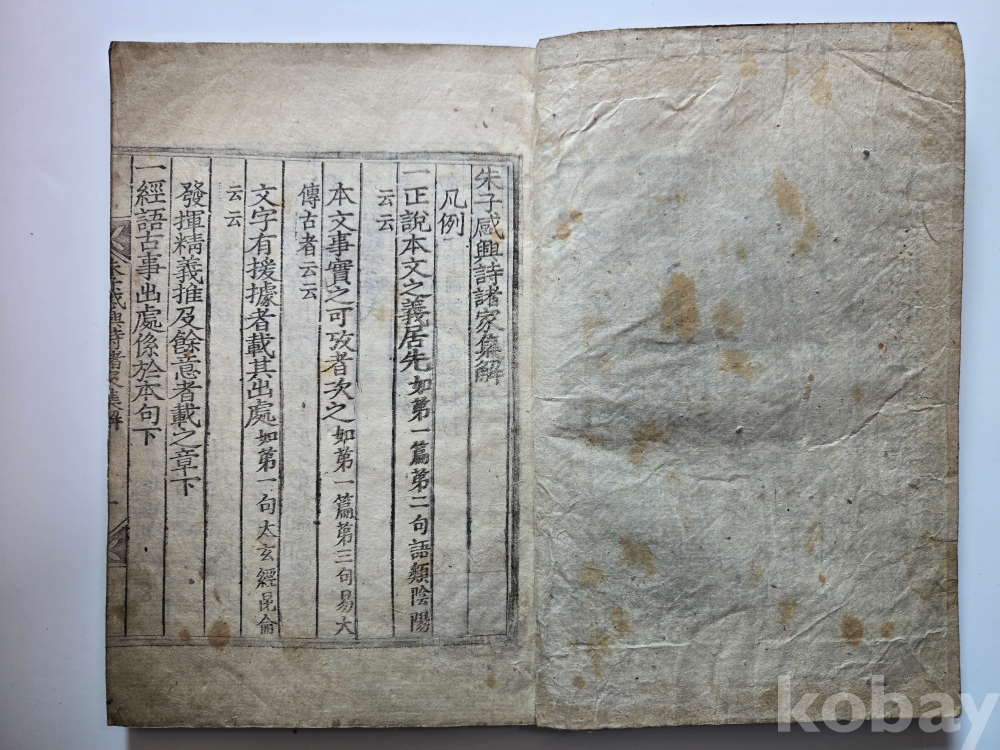 朱子感興詩諸家集解
凡例
一正說本文之義居先如第一篇第二句語類陰陽
云云
本文事實之可攷者次之如第一篇第三句易大
傳古者云云
文字有援據者載其出處如第一句太玄經昆侖
云云
發揮精義推及餘意者載之章下
一經語古事出處係於本句下
朱子感興詩諸家集解
一
kobay